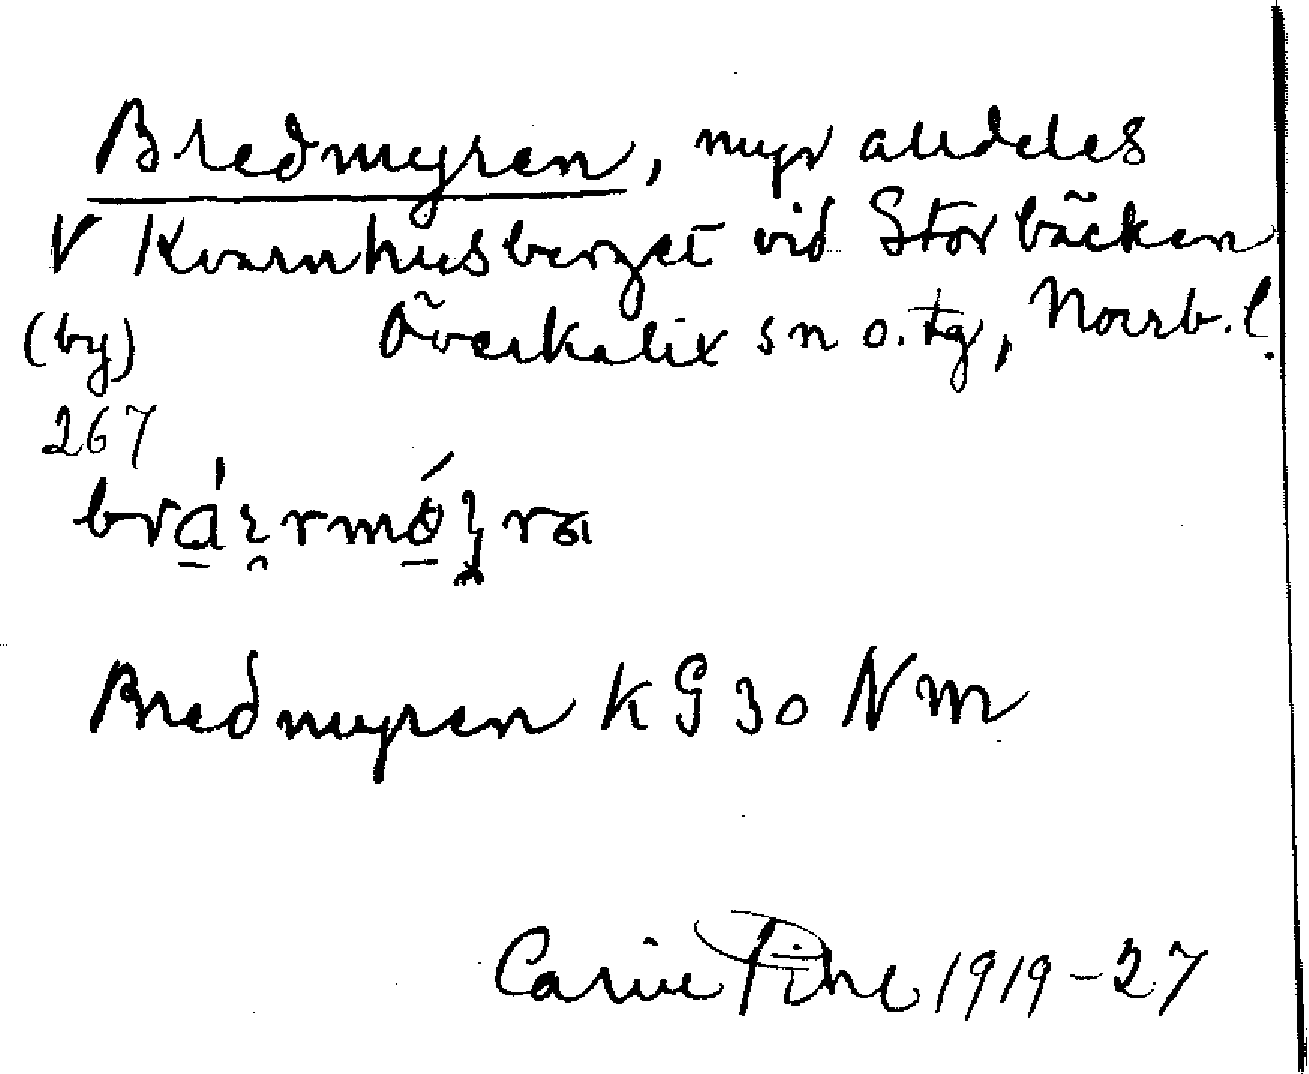 Bredmyren, myr alldeles
V Kvarnhusberget vid Storbäcken
(by) Överkalix sn o. tg, Norrb. l.
267
Bredmyren KG 30 NM
Carin Pihl 1919-27